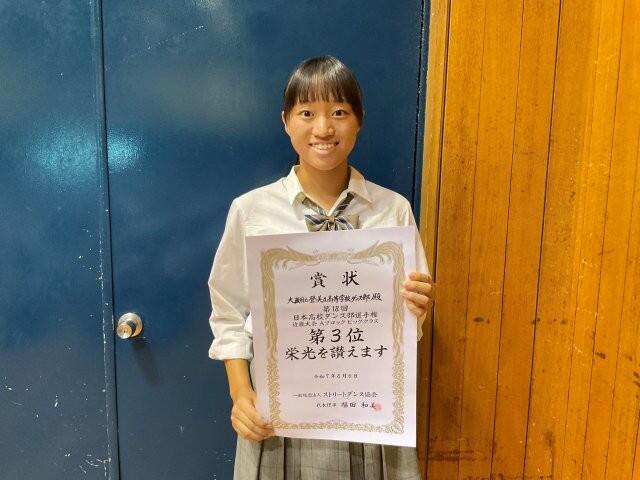 賞状
大阪府立登美丘高等学校ダンス部 殿
第18回
日本高校ダンス部選手権
近畿大会 Aブロック ビッグクラス
第3位
栄光を讃えます
令和7年8月6日
一般社団法人 ストリートダンス協会
代表理事 福田 和